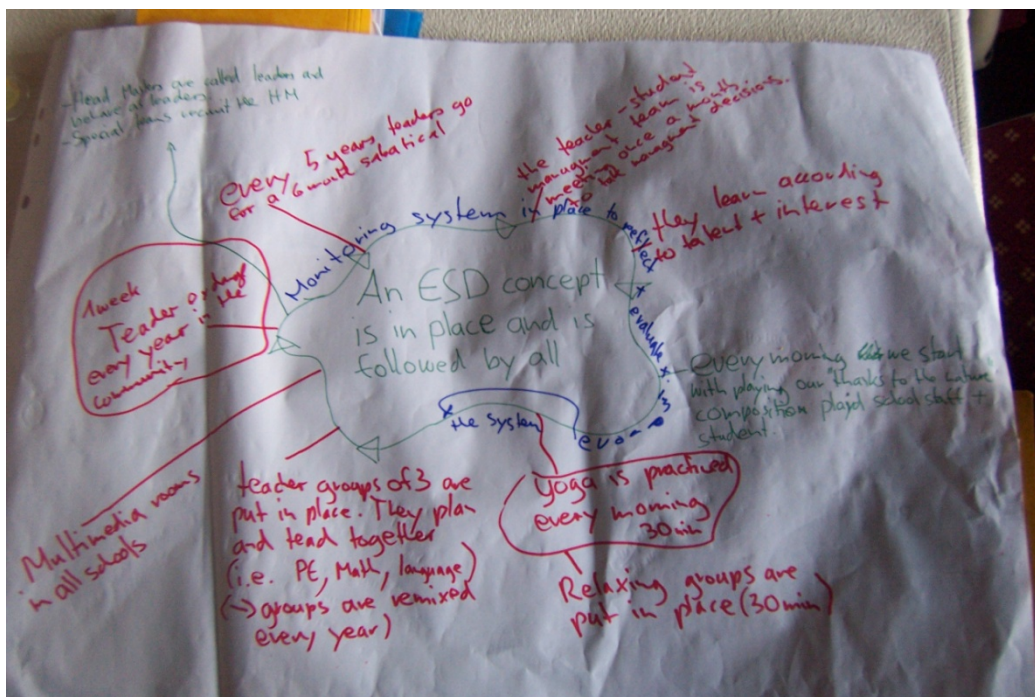 - Head Masters are called leaders and
behave as leaders.
- Special teams recruit the HM
every 5 years teaders go
for a 6 month sabatical
the teacher - student
managment team is
meeting once a month
managment decisions.
they learn according
to talent + interest
Monitoring system in place to reflect + evaluate +
the system
An ESD concept
is in place and is
followed by all
1 week
Teader
every year in the
community
- every morning we start
with playing our "thanks to the nature
composition plajd school staff +
student.
Multimedia rooms
in all schools
teader groups of 3 are
put in place. They plan
and tead together
(i.e. PE, Math, language)
(→ groups are remixed
every year)
yoga is practised
every morning
30 min
Relaxing groups are
put in place (30 min)